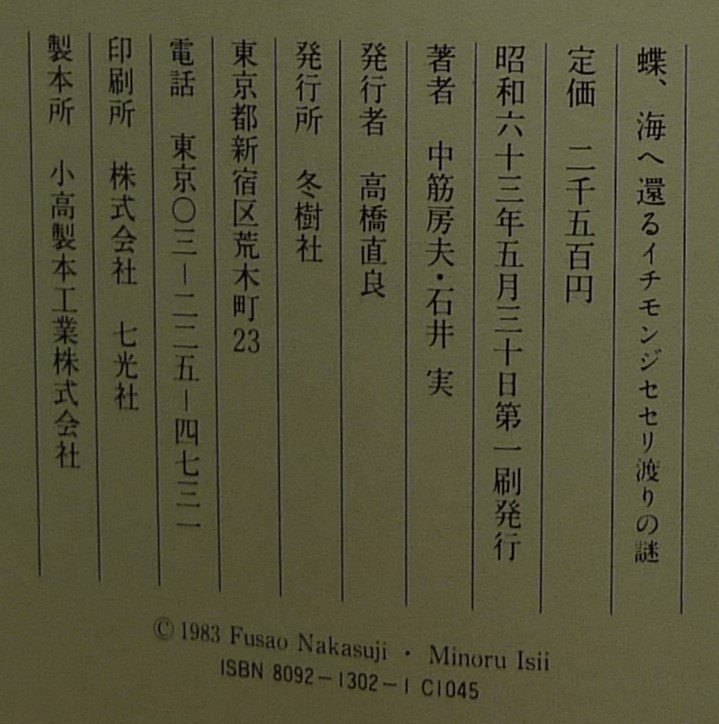 蝶、海へ還るイチモンジセセリ渡りの謎
定価 二千五百円
昭和六十三年五月三十日第一刷発行
著者 中筋房夫・石井 実
発行者 高橋直良
発行所 冬樹社
東京都新宿区荒木町23
電話 東京〇三-二二五-四七三一
印刷所 株式会社 七光社
製本所 小高製本工業株式会社
© 1983 Fusao Nakasuji ・ Minoru Isii
ISBN 8092-1302-1 C1045